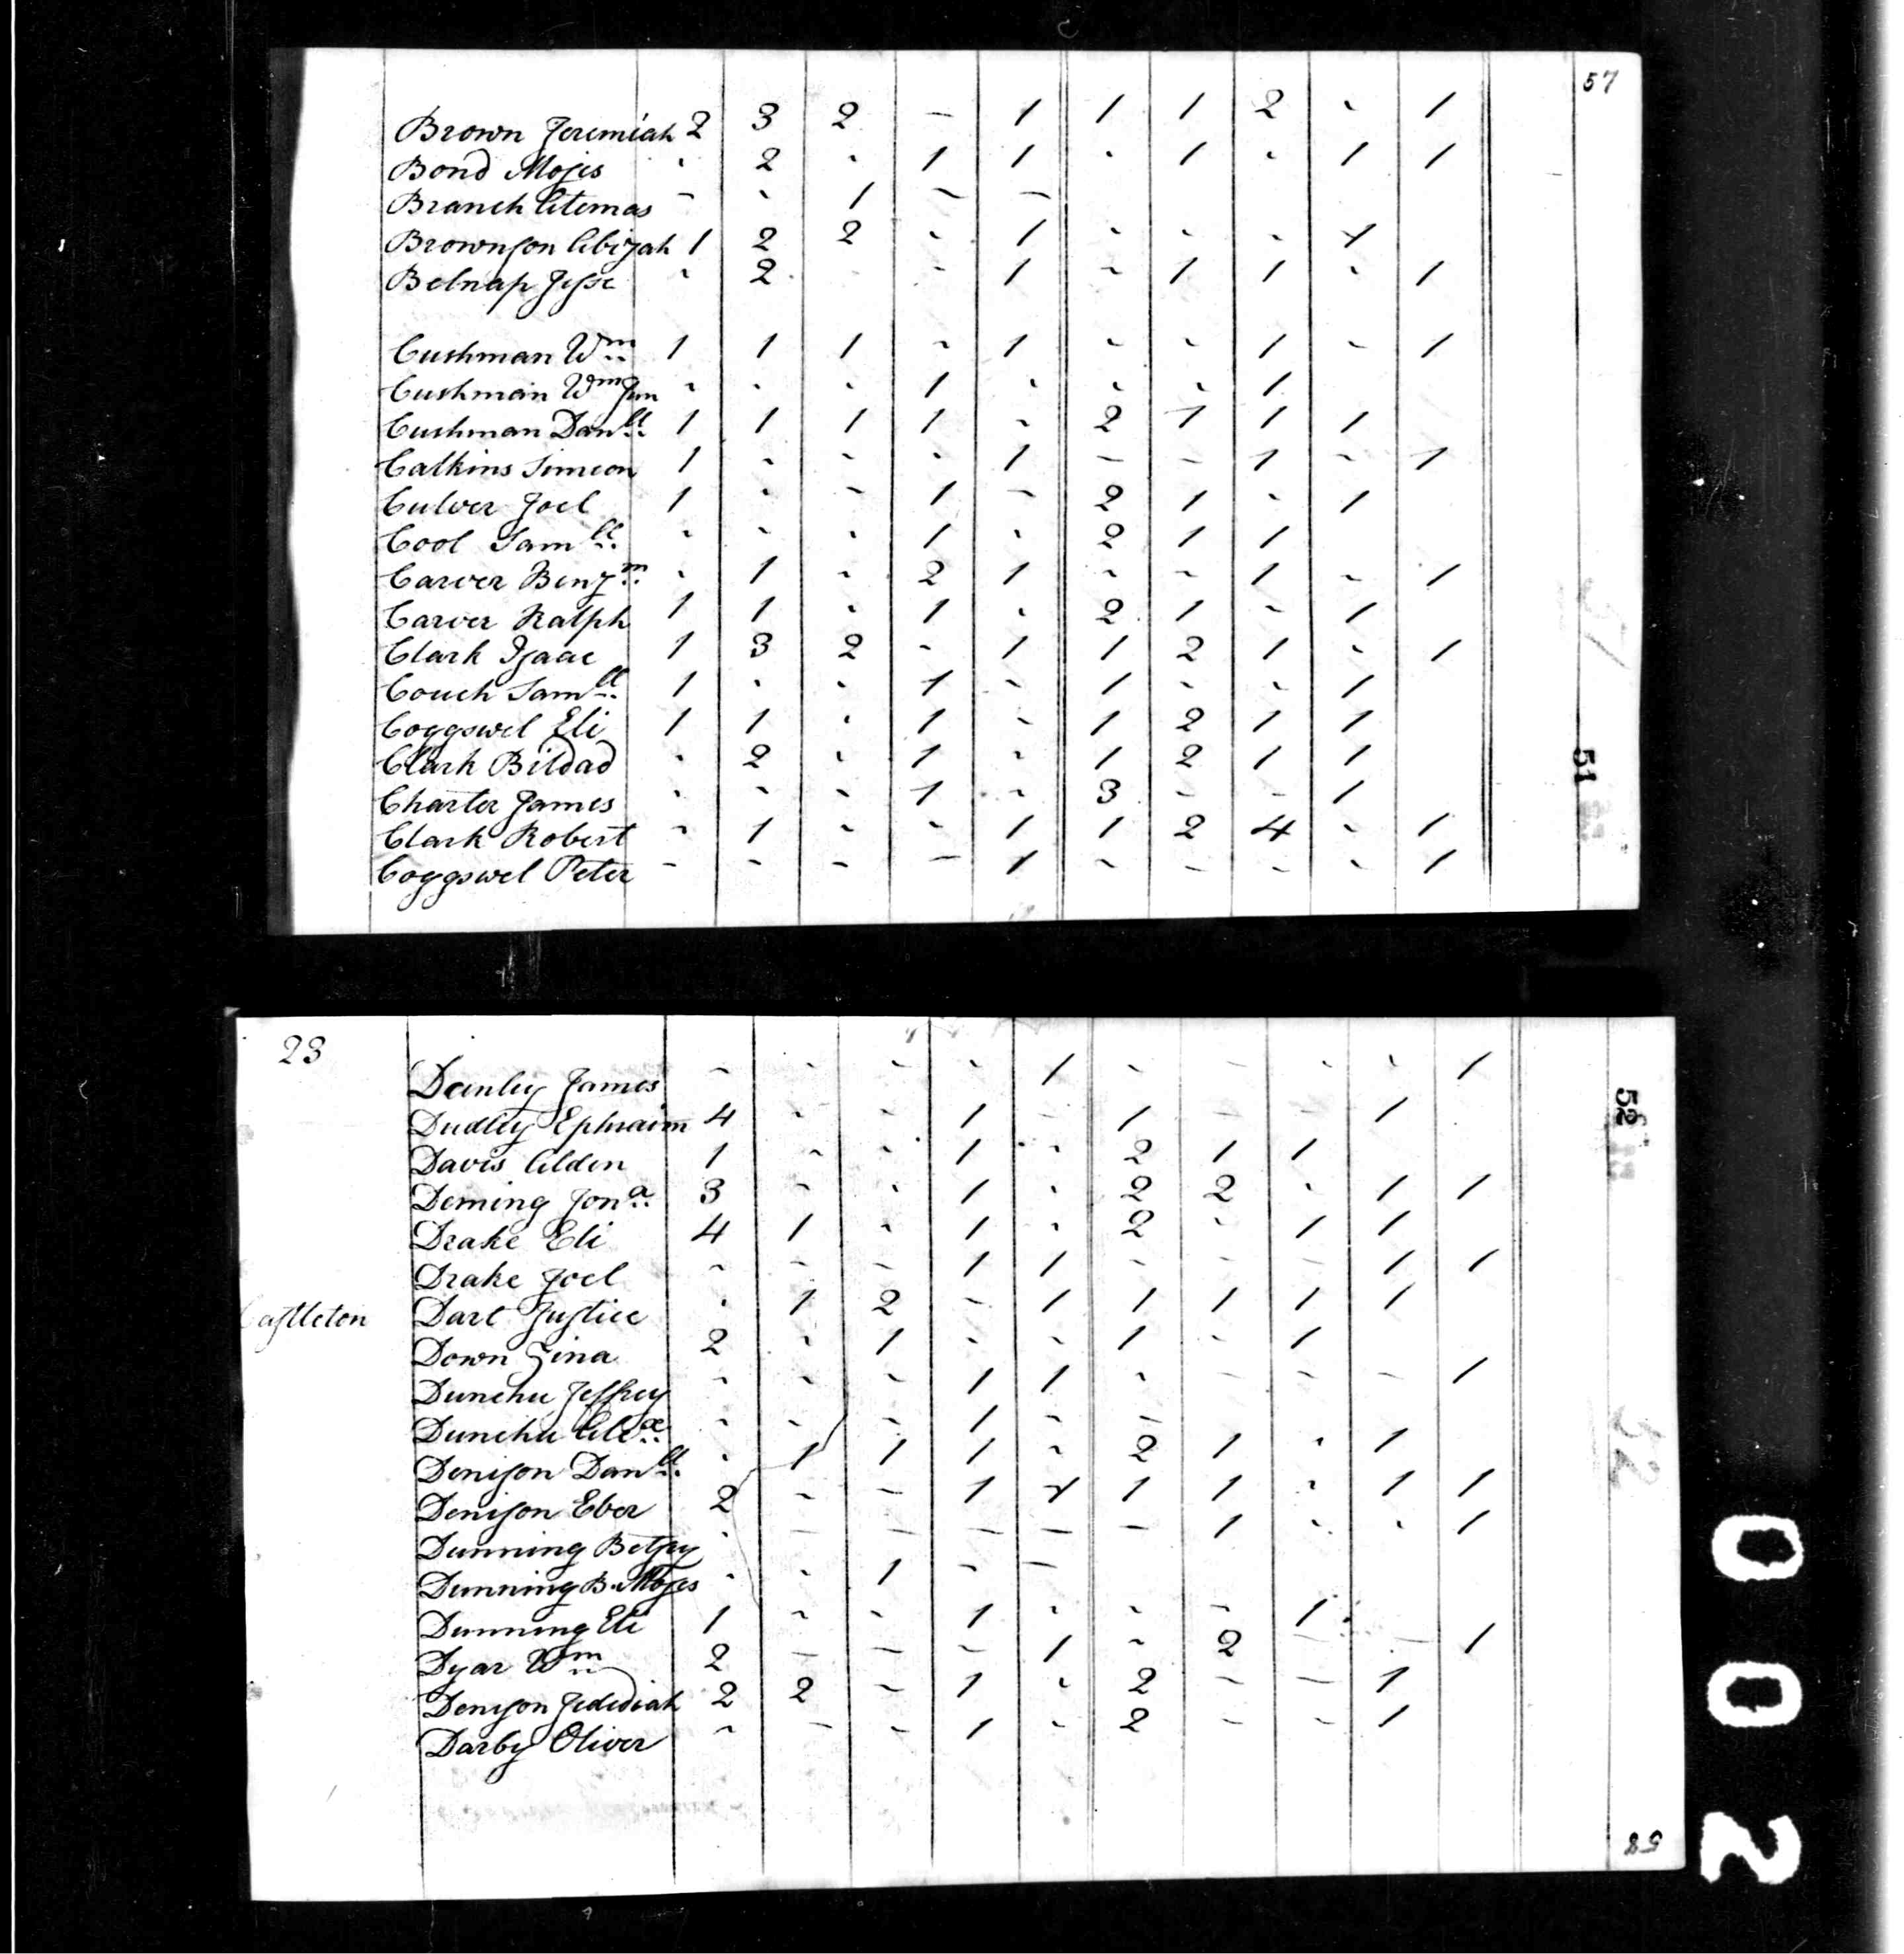 57
Brown Jeremiah 2 3 2 - 1 1 1 2 - 1
Bond Moses - 2 - 1 1 - 1 - 1 1
Branch Artemas - - 1 - -
Brownson Abijah 1 2 2 - 1 - - - 1
Belnap Jesse - 2 - - 1 - 1 1 - 1
Cushman Wm 1 1 1 - 1 - - 1 - 1
Cushman Wm Jun - - - 1 - - - 1
Cushman Danll 1 1 1 1 - 2 1 1 1
Calkins Simeon 1 - - - 1 - - 1 - 1
Culver Joel 1 - - 1 - 2 1 - 1
Cool Samll - - - 1 - 2 1 1
Carver Benjm - 1 - 2 1 - - 1 - 1
Carver Ralph 1 1 - 1 - 2 1 - 1
Clark Isaac 1 3 2 - 1 1 2 1 - 1
Couch Samll 1 - - 1 - 1 - - 1
Coggswel Eli 1 1 - 1 - 1 2 1 1
Clark Bildad - 2 - 1 - 1 2 1 1
51
Charter James - - - 1 - 3 - - 1
Clark Robert - 1 - - 1 1 2 4 - 1
Coggswel Peter - - - - 1 - - - - 1
23
Danley James - - - - 1 - - - - 1
52
Dudley Ephraim 4 - - 1 - 1 - - 1
Davis Alden 1 - - 1 - 2 1 1
Deming Jona 3 - - 1 - 2 2 - 1 1
Drake Eli 4 1 - 1 - 2 - 1 1
Drake Joel - - - 1 1 - - - 1 1
Castleton Dart Justice - 1 2 - 1 1 1 1 1
Down Zina 2 - 1 - - 1 - 1
Dunchu Jeffrey - - - 1 1 - - - - 1
Dunchu Alex - - - 1 - -
Denison Danll - 1 1 1 - 2 1 - 1
Denison Eber 2 - - 1 1 1 1 - 1 1
Dunning Betsey - - - - - - 1 - - 1
Dunning B. Moses - - 1 - -
Dunning Eli 1 - - 1 - - - 1
Dyar Wm 2 - - - 1 - 2 - - 1
Denison Jedediah 2 2 - 1 - 2 - - 1
Darby Oliver - - - 1 - 2 - - 1
52
58
002